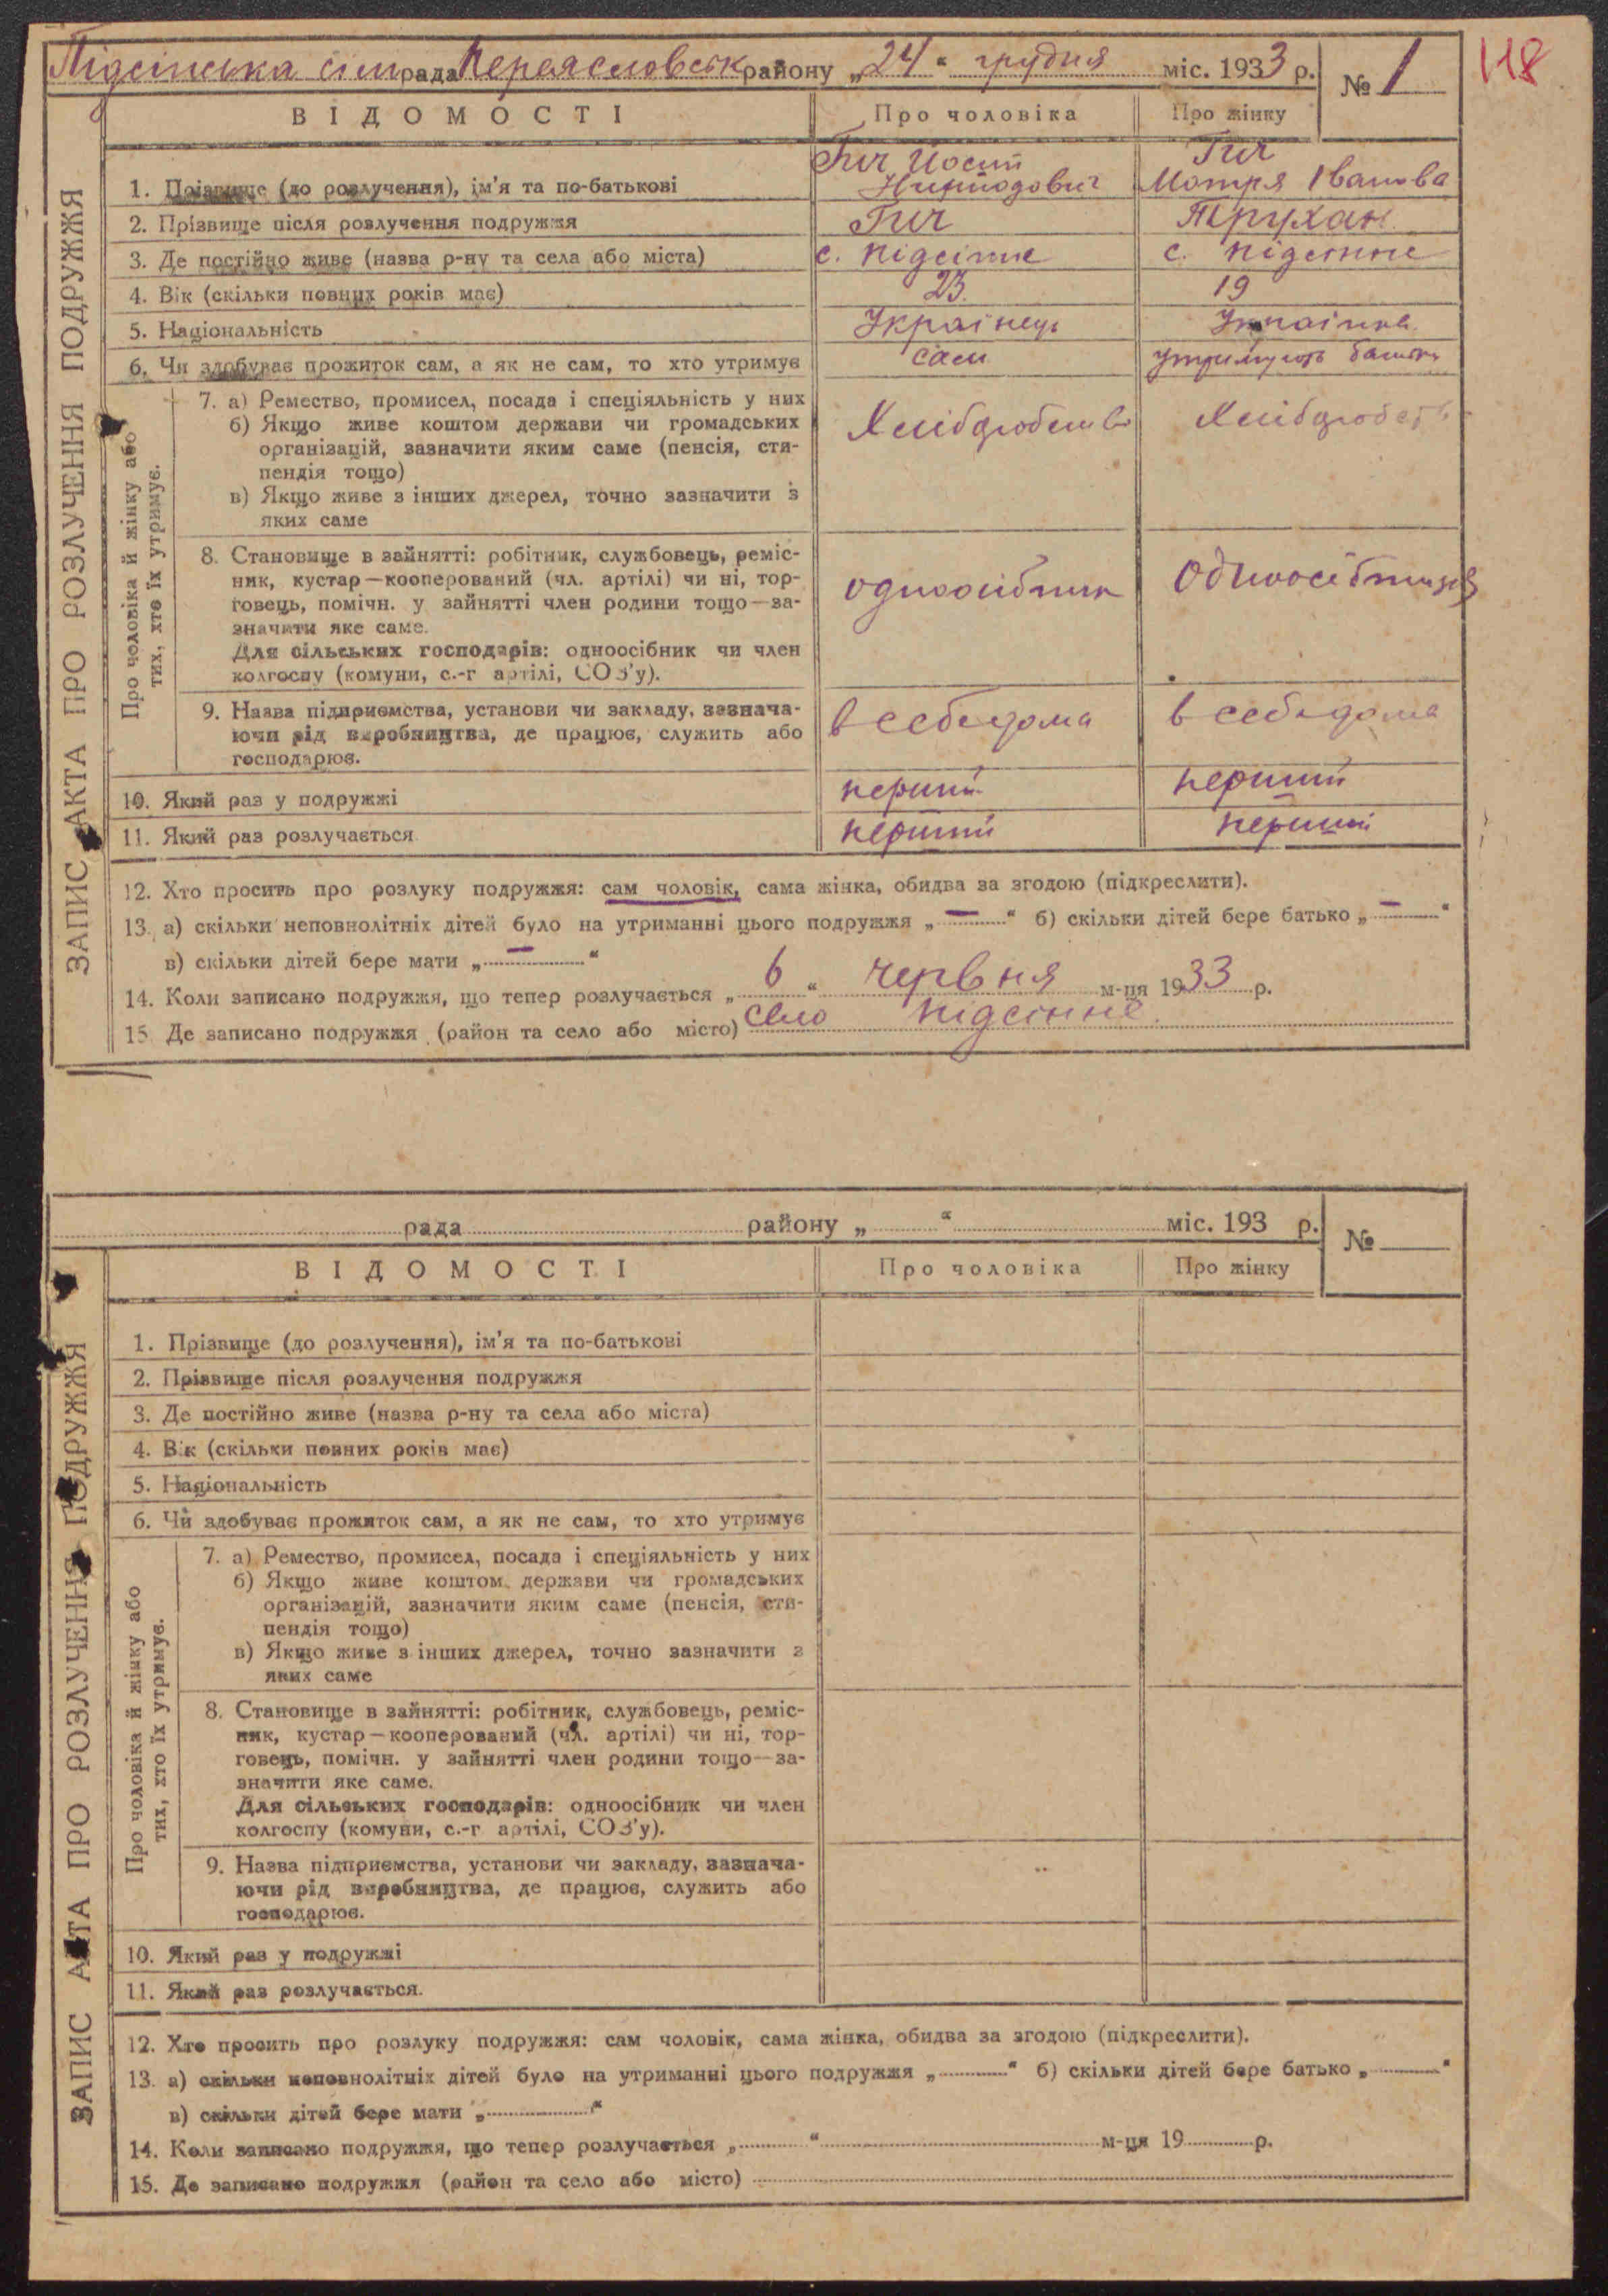 Підсінська сіл рада Переяславськ району „24“ грудня міс. 1933 р. № 1
118
ВІДОМОСТІ
Про чоловіка
Про жінку
1. Прізвище (до розлучення), ім'я та по-батькові
Гич Йосип
Гич
Мотря Іванова
2. Прізвище після розлучення подружжя
Гич
Трухан
3. Де постійно живе (назва р-ну та села або міста)
с. Підсінне
с. Підсінне
4. Вік (скільки повних років має)
23
19
5. Національність
Українець
Українка
6. Чи здобуває прожиток сам, а як не сам, то хто утримує
сам
утримують батьки
7. а) Ремество, промисел, посада і спеціяльність у них
б) Якщо живе коштом держави чи громадських
організацій, зазначити яким саме (пенсія, сти-
пендія тощо)
в) Якщо живе з інших джерел, точно зазначити з
яких саме
Хлібробство
Хлібробство
8. Становище в зайнятті: робітник, службовець, реміс-
ник, кустар—кооперований (чл. артілі) чи ні, тор-
говець, помічн. у зайнятті член родини тощо—за-
значити яке саме.
Для сільських господарів: одноосібник чи член
колгоспу (комуни, с.-г артілі, СОЗ'у).
одноосібник
одноосібниця
9. Назва підприємства, установи чи закладу, зазнача-
ючи рід виробництва, де працює, служить або
господарює.
в себе дома
в себе дома
10. Який раз у подружжі
перший
перший
11. Який раз розлучається
перший
перший
12. Хто просить про розлуку подружжя: сам чоловік, сама жінка, обидва за згодою (підкреслити).
13. а) скільки неповнолітніх дітей було на утриманні цього подружжя „—“ б) скільки дітей бере батько „—“
в) скільки дітей бере мати „—“
14. Коли записано подружжя, що тепер розлучається „6“ червня м-ця 1933 р.
15 Де записано подружжя (район та село або місто) село Підсінне.
ЗАПИС АКТА ПРО РОЗЛУЧЕННЯ ПОДРУЖЖЯ
Про чоловіка й жінку або
тих, хто їх утримує.
рада району „ “ міс. 193 р. №
ВІДОМОСТІ
Про чоловіка
Про жінку
1. Прізвище (до розлучення), ім'я та по-батькові
2. Прізвище після розлучення подружжя
3. Де постійно живе (назва р-ну та села або міста)
4. Вік (скільки повних років має)
5. Національність
6. Чи здобуває прожиток сам, а як не сам, то хто утримує
7. а) Ремество, промисел, посада і спеціяльність у них
б) Якщо живе коштом держави чи громадських
організацій, зазначити яким саме (пенсія, сти-
пендія тощо)
в) Якщо живе з інших джерел, точно зазначити з
яких саме
8. Становище в зайнятті: робітник, службовець, реміс-
ник, кустар—кооперований (чл. артілі) чи ні, тор-
говець, помічн. у зайнятті член родини тощо—за-
значити яке саме.
Для сільських господарів: одноосібник чи член
колгоспу (комуни, с.-г артілі, СОЗ'у).
9. Назва підприємства, установи чи закладу, зазнача-
ючи рід виробництва, де працює, служить або
господарює.
10. Який раз у подружжі
11. Який раз розлучається.
12. Хто просить про розлуку подружжя: сам чоловік, сама жінка, обидва за згодою (підкреслити).
13. а) скільки неповнолітніх дітей було на утриманні цього подружжя „ “ б) скільки дітей бере батько „ “
в) скільки дітей бере мати „ “
14. Коли записано подружжя, що тепер розлучається „ “ м-ця 19 р.
15. Де записано подружжя (район та село або місто)
ЗАПИС АКТА ПРО РОЗЛУЧЕННЯ ПОДРУЖЖЯ
Про чоловіка й жінку або
тих, хто їх утримує.